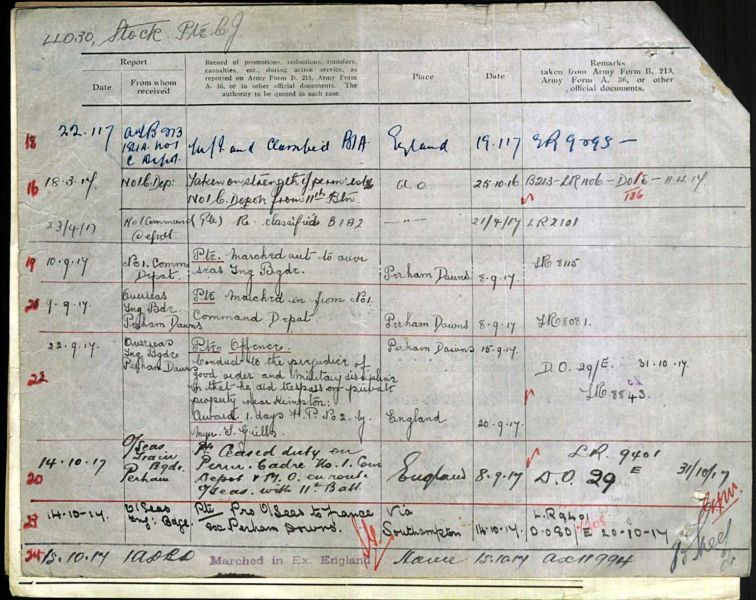 Stock. Pte C J
Report
Record of promotions, reductions, transfers,
casualties, etc., during active service, as
reported on Army Form B. 213, Army Form
A. 36, or in other official documents. The
authority to be quoted in each case.
Place
Date
Remarks
taken from Army Form B. 213,
Army Form A. 36, or other
official documents.
Date
From whom
received
18
22.1.17
No 1
C Depot.
and Classified B1A
England
19.1.17
LR 9095 -
16
18.3.17.
No 1 C. Dep.
Taken on strength of perm
No 1 C. Depot from 11th Btn.
25.10.16
B213-LR 1106-
11.4.17
23/4/17
No 1 Command
Depot
(Pte) Re-classified B1A2
- " -
21/4/17
LR 2101
19
10.9.17
No. 1. Comm
Depot.
Pte. marched out to over
seas Tng Bgde.
Perham Downs
8.9.17.
LR 8115
20
9.9.17.
Overseas
Tng Bde
Perham Downs
Pte marched in from No 1.
Command Depot.
Perham Downs
8.9.17.
LR 8081.
22
22.9.17.
Overseas
Tng Bgde
Perham Downs
Pte Offence:
Conduct to the prejudice of
good order and military discipline
in that he did trespass on private
property near Kimpton:
Award 1. days F.P. No 2. by
Perham Downs
15.9.17.
England
20.9.17.
D.O. 29/E
31.10.17.
LR 8843.
20
14.10.17
O/Seas
Train
Bgde.
Perham
Ceased duty on
Perm. Cadre No. 1. Com
Depot & M. O. en route
O/seas. with 11th Batt
England
8.9.17
LR. 9401
D.O. 29 E
31/10/17
23
14.10.17.
O/Seas
Tng. Bgde.
Pte Pro O/Seas to France
ex Perham Downs.
Via
Southampton
14.10.17.
LR 9401
E 20-10-17
24
15.10.17
Marched in Ex. England
15.10.17